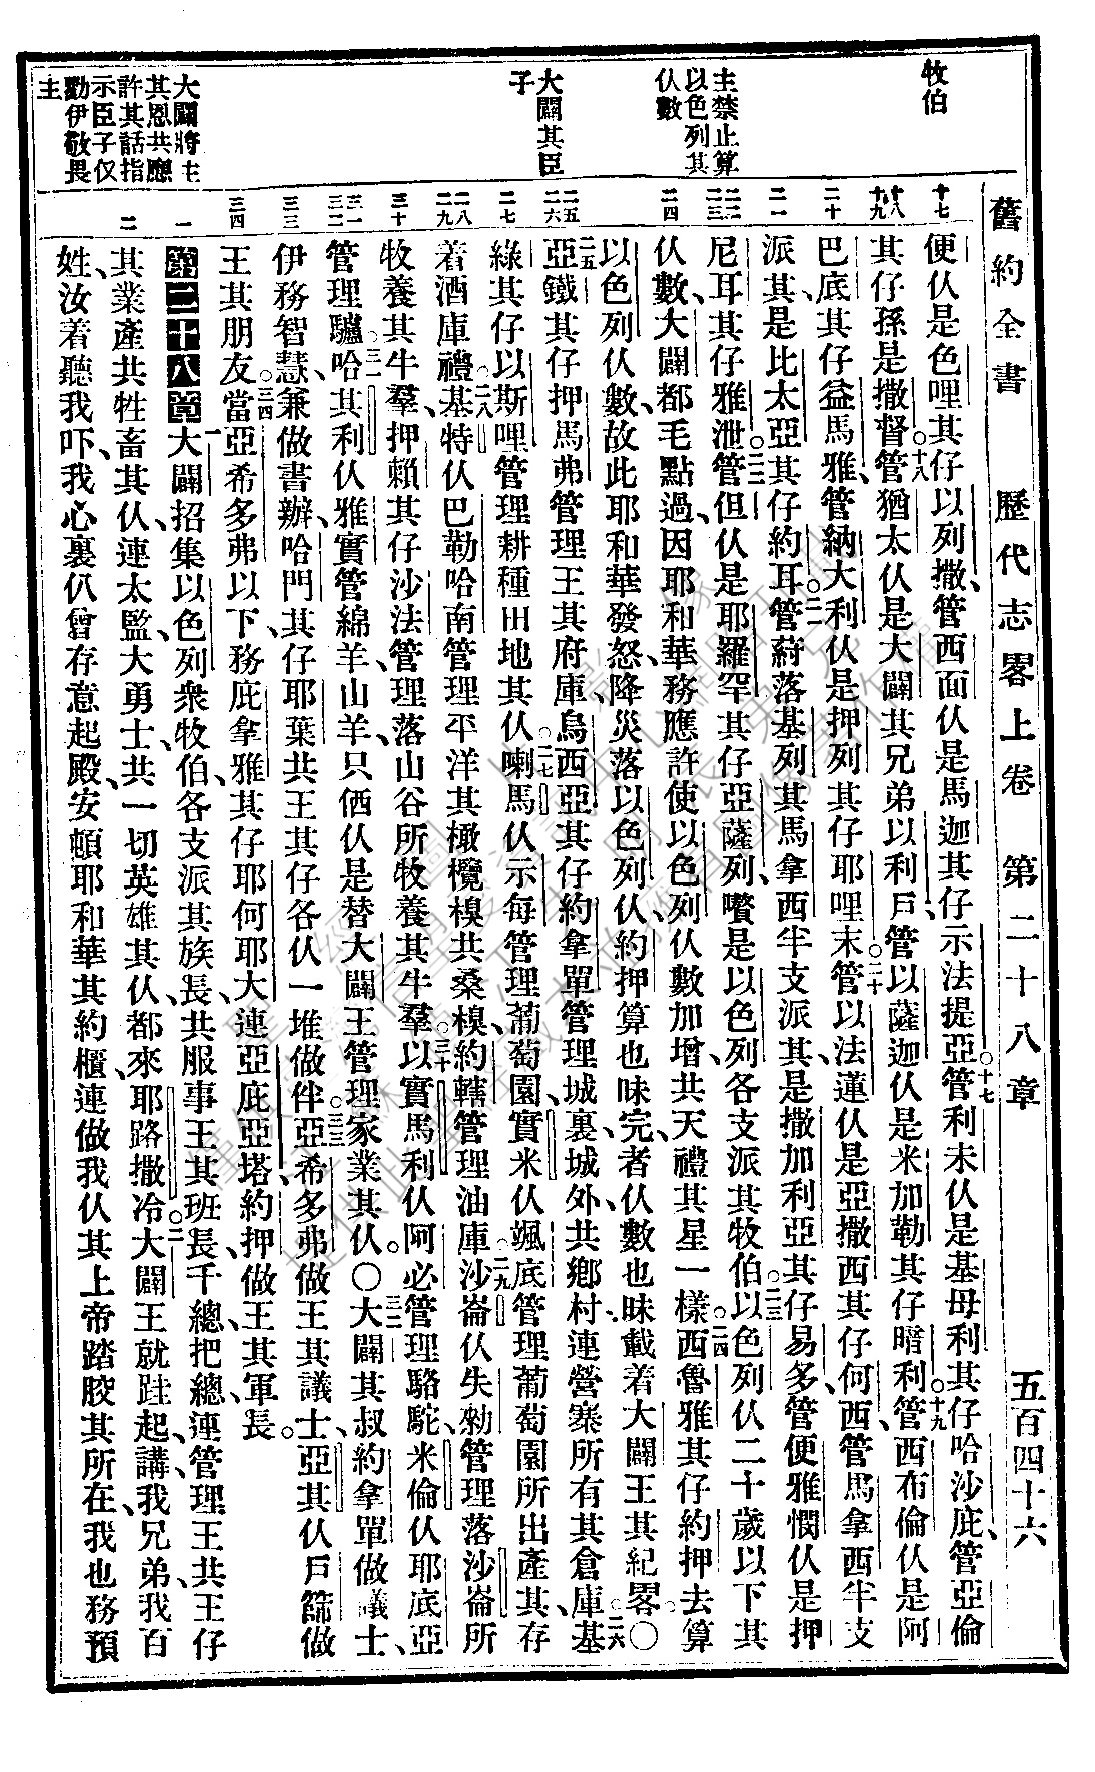 舊約全書　歷代志畧上卷　第二十八章　五百四十六
牧伯
主禁止算
以色列其
仈數
大闢其臣
子
大闢將主
其恩共應
許其話指
示臣子仅
勸伊敬畏
主
十七
十八
十九
二十
二一
二二
二三
二四
二五
二六
二七
二八
二九
三十
三一
三二
三三
三四
一
二
便仈是色哩其仔以列撒管西面仈是馬迦其仔示法提亞○十七管利未仈是基母利其仔哈沙庇管亞倫
其仔孫是撒督○十八管猶太仈是大闢其兄弟以利戶管以薩迦仈是米加勒其仔暗利○十九管西布倫仈是阿
巴底其仔益馬雅管納大利仈是押列其仔耶哩末○二十管以法蓮仈是亞撒西其仔何西管馬拿西半支
派其是比太亞其仔約耳○二一管蒞落基列其馬拿西半支派其是撒加利亞其仔易多管便雅憫仈是押
尼耳其仔雅泄○二二管但仈是耶羅罕其仔亞薩列嚽是以色列各支派其牧伯○二三以色列仈二十歲以下其
仈數大闢都毛點過因耶和華務應許使以色列仈數加增共天禮其星一樣○二四西魯雅其仔約押去算
以色列仈數故此耶和華發怒降災落以色列仈約押算也昧完者仈數也昧載着大闢王其紀畧○
二五亞鐵其仔押馬弗管理王其府庫烏西亞其仔約拿單管理城裏城外共鄉村連營寨所有其倉庫○二六基
綠其仔以斯哩管理耕種田地其仈○二七喇馬仈示每管理葡萄園實米仈颯底管理葡萄園所出產其存
着酒庫禮○二八基特仈巴勒哈南管理平洋其橄欖模共桑模約轄管理油庫○二九沙崙仈失勑管理落沙崙所
牧養其牛羣押賴其仔沙法管理落山谷所牧養其牛羣○三十以實馬利仈阿必管理駱駝米倫仈耶底亞
管理驢○三一哈其利仈雅實管綿羊山羊只俤仈是替大闢王管理家業其仈○三二大闢其叔約拿單做議士
伊務智慧兼做書辦哈門其仔耶葉共王其仔各仈一堆做伴○三三亞希多弗做王其議士亞其仈戶篩做
王其朋友○三四當亞希多弗以下務庇拿雅其仔耶何耶大連亞庇亞塔約押做王其軍長
第二十八章一大闢招集以色列衆牧伯各支派其族長共服事王其班長千總把總連管理王共王仔
其業產共牲畜其仈連太監大勇士共一切英雄其仈都來耶路撒冷○二大闢王就跬起講我兄弟我百
姓汝着聽我吓我心裏仈曾存意起殿安頓耶和華其約櫃連做我仈其上帝踏骹其所在我也務預